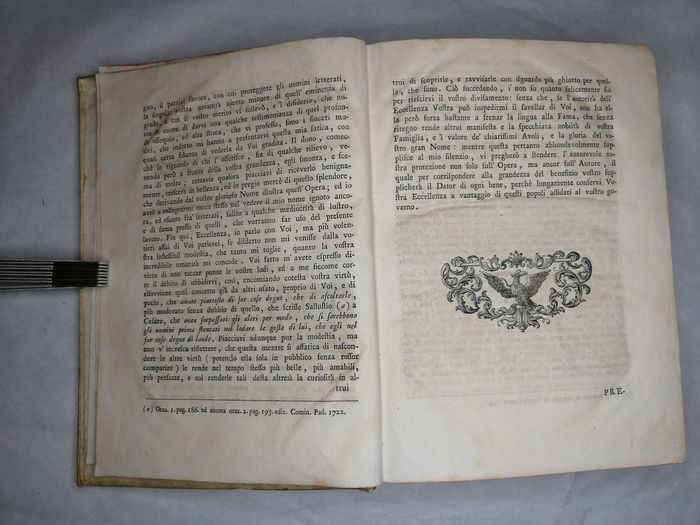 gno, il parzial favore, con cui proteggete gli uomini letterati,
la singular vostra umanità niente minore di quell' eminenza di
grado, a cui il vostro merito vi sollevò, e 'l disiderio, che nu-
tro in cuore di darvi una qualche testimonianza di quel profon-
do ossequio, ed alta stima, che vi professo, sono i sinceri mo-
tivi, che indotto mi hanno a presentarvi questa mia fatica, con
quasi certa fidanza di vederla da Voi gradita. Il dono, comec-
chè in riguardo di chi l' offerisce, sia da qualche rilievo, ve-
nendo però a fronte della vostra grandezza, egli smonta, e sce-
ma di molto; tuttavia qualora piacciavi di riceverlo benigna-
mente, crescerà in bellezza, ed in pregio mercè di quello splendore,
che derivando dal vostro glorioso Nome illustra quest' Opera; ed io
avrò a rallegrarmi meco stesso nel vedere il mio nome ignoto anco-
ra, ed oscuro fra' letterati, salito a qualche mediocrità di lustro,
e di fama presso di quelli, che vorranno far uso del presente
lavoro. Fin qui, Eccellenza, io parlo con Voi, ma più volen-
tieri assai di Voi parlerei, se disdetto non mi venisse dalla vo-
stra inflessibil modestia, che tanto mi toglie, quanto la vostra
incredibile umanità mi concede. Voi fatto m' avete espresso di-
vieto di non toccar punto le vostre lodi, ed a me siccome cor-
re il debito di ubbidirvi, così, encomiando cotesta vostra virtù,
risovviene quel concetto già da altri usato, proprio di Voi, e di
pochi, che amate piuttosto di far cose degne, che di ascoltarle,
più moderato senza dubbio di quello, che scrisse Sallustio (a) a
Cesare, che avea sorpassati gli altri per modo, che si sarebbono
gli uomini prima stancati nel lodare le gesta di lui, che egli nel
far cose degne di laude. Piacciavi adunque pur la modestia, ma
non v' incresca riflettere, che questa mentre si affatica di nascon-
dere le altre virtù (potendo ella sola in pubblico senza rossor
comparire) le rende nel tempo stesso più belle, più amabili,
più perfette, e col renderle tali desta altresì la curiosità in al-
trui
(a) Oraz. 1. pag. 186. ed ancora oraz. 2. pag. 193. ediz. Comin. Pad. 1722.
trui di scoprirle, e ravvisarle con isguardo più ghiotto per quel-
le, che sono. Ciò succedendo, i' non so quanto felicemente sia
per riescirvi il vostro divisamento: senza che, se l' autorità dell'
Eccellenza Vostra può impedirmi il favellar di Voi, non ha el-
la però forza bastante a frenar la lingua alla Fama, che senza
ritegno rende altrui manifesta e la specchiata nobiltà di vostra
Famiglia, e 'l valore de' chiarissimi Avoli, e la gloria del vo-
stro gran Nome: mentre questa pertanto abbondevolmente sup-
plisce al mio silenzio, vi pregherò a stendere l' autorevole vo-
stra protezione non solo sull' Opera, ma ancor sull' Autore, il
quale per corrispondere alla grandezza del benefizio vostro sup-
plicherà il Dator di ogni bene, perchè lungamente conservi Vo-
stra Eccellenza a vantaggio di questi popoli affidati al vostro go-
verno.
PRE-